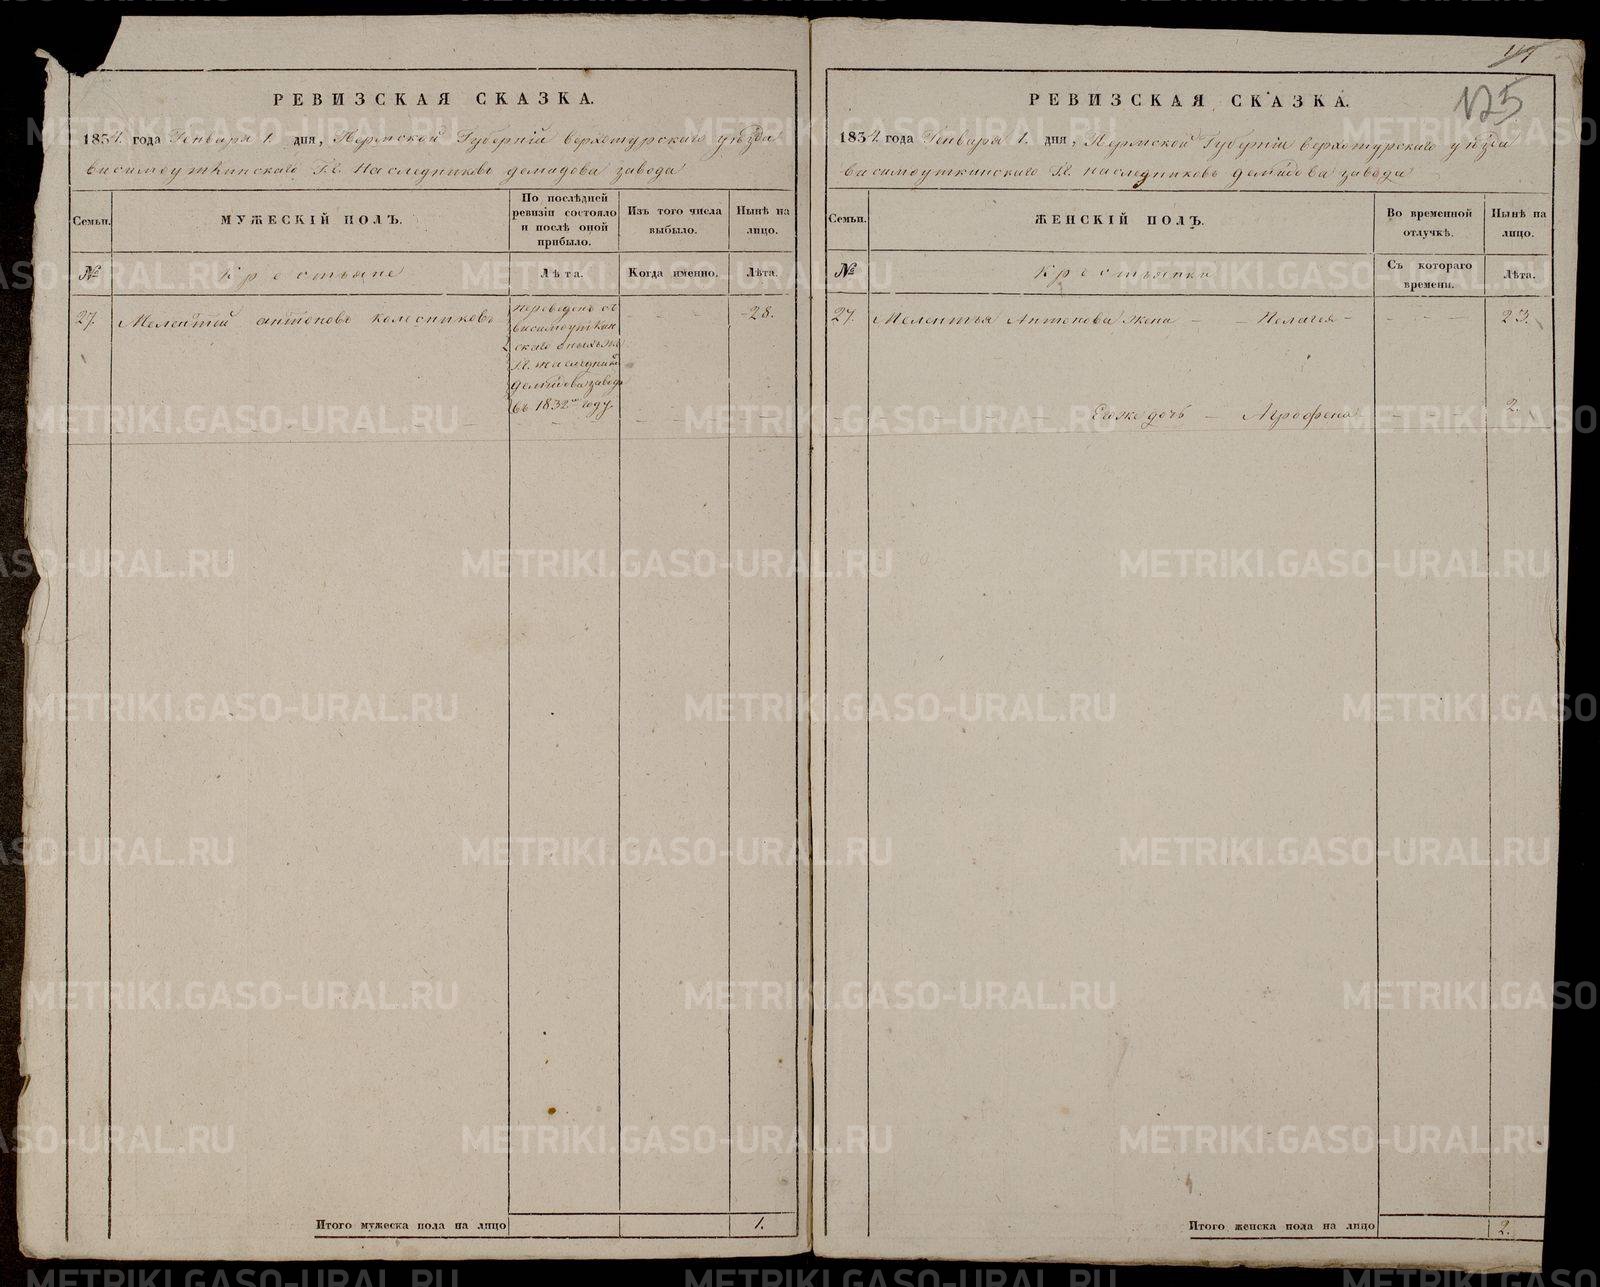 РЕВИЗСКАЯ СКАЗКА.
1834 года Генваря 1. дня, Пермской Губерніи верхотурскаго уѣзда
висимоуткинскаго Г.г. Наследниковъ демидова завода
Семьи.
МУЖЕСКІЙ ПОЛЪ.
По послѣдней ревизіи состояло и послѣ оной прибыло.
Изъ того числа выбыло.
Нынѣ на лицо.
№
Крестьяне
Лѣта.
Когда именно.
Лѣта.
27.
Мелентий антоновъ колесниковъ
переведенъ съ
висимоуткин
скаго
Г.г. наследник
демидова завода
въ 1832м году.
28.
Итого мужеска пола на лицо
1.
125
РЕВИЗСКАЯ СКАЗКА.
1834 года Генваря 1. дня, Пермской Губерніи верхотурскаго уѣзда
висимоуткинскаго Г.г. наследниковъ демидова завода
Семьи.
ЖЕНСКІЙ ПОЛЪ.
Во временной отлучкѣ.
Нынѣ на лицо.
№
Крестьянки
Съ котораго времени.
Лѣта.
27.
Мелентья Антонова жена - - Пелагея -
23.
Евоже дочь - Агрофена
2.
Итого женска пола на лицо
2.
METRIKI.GASO-URAL.RU